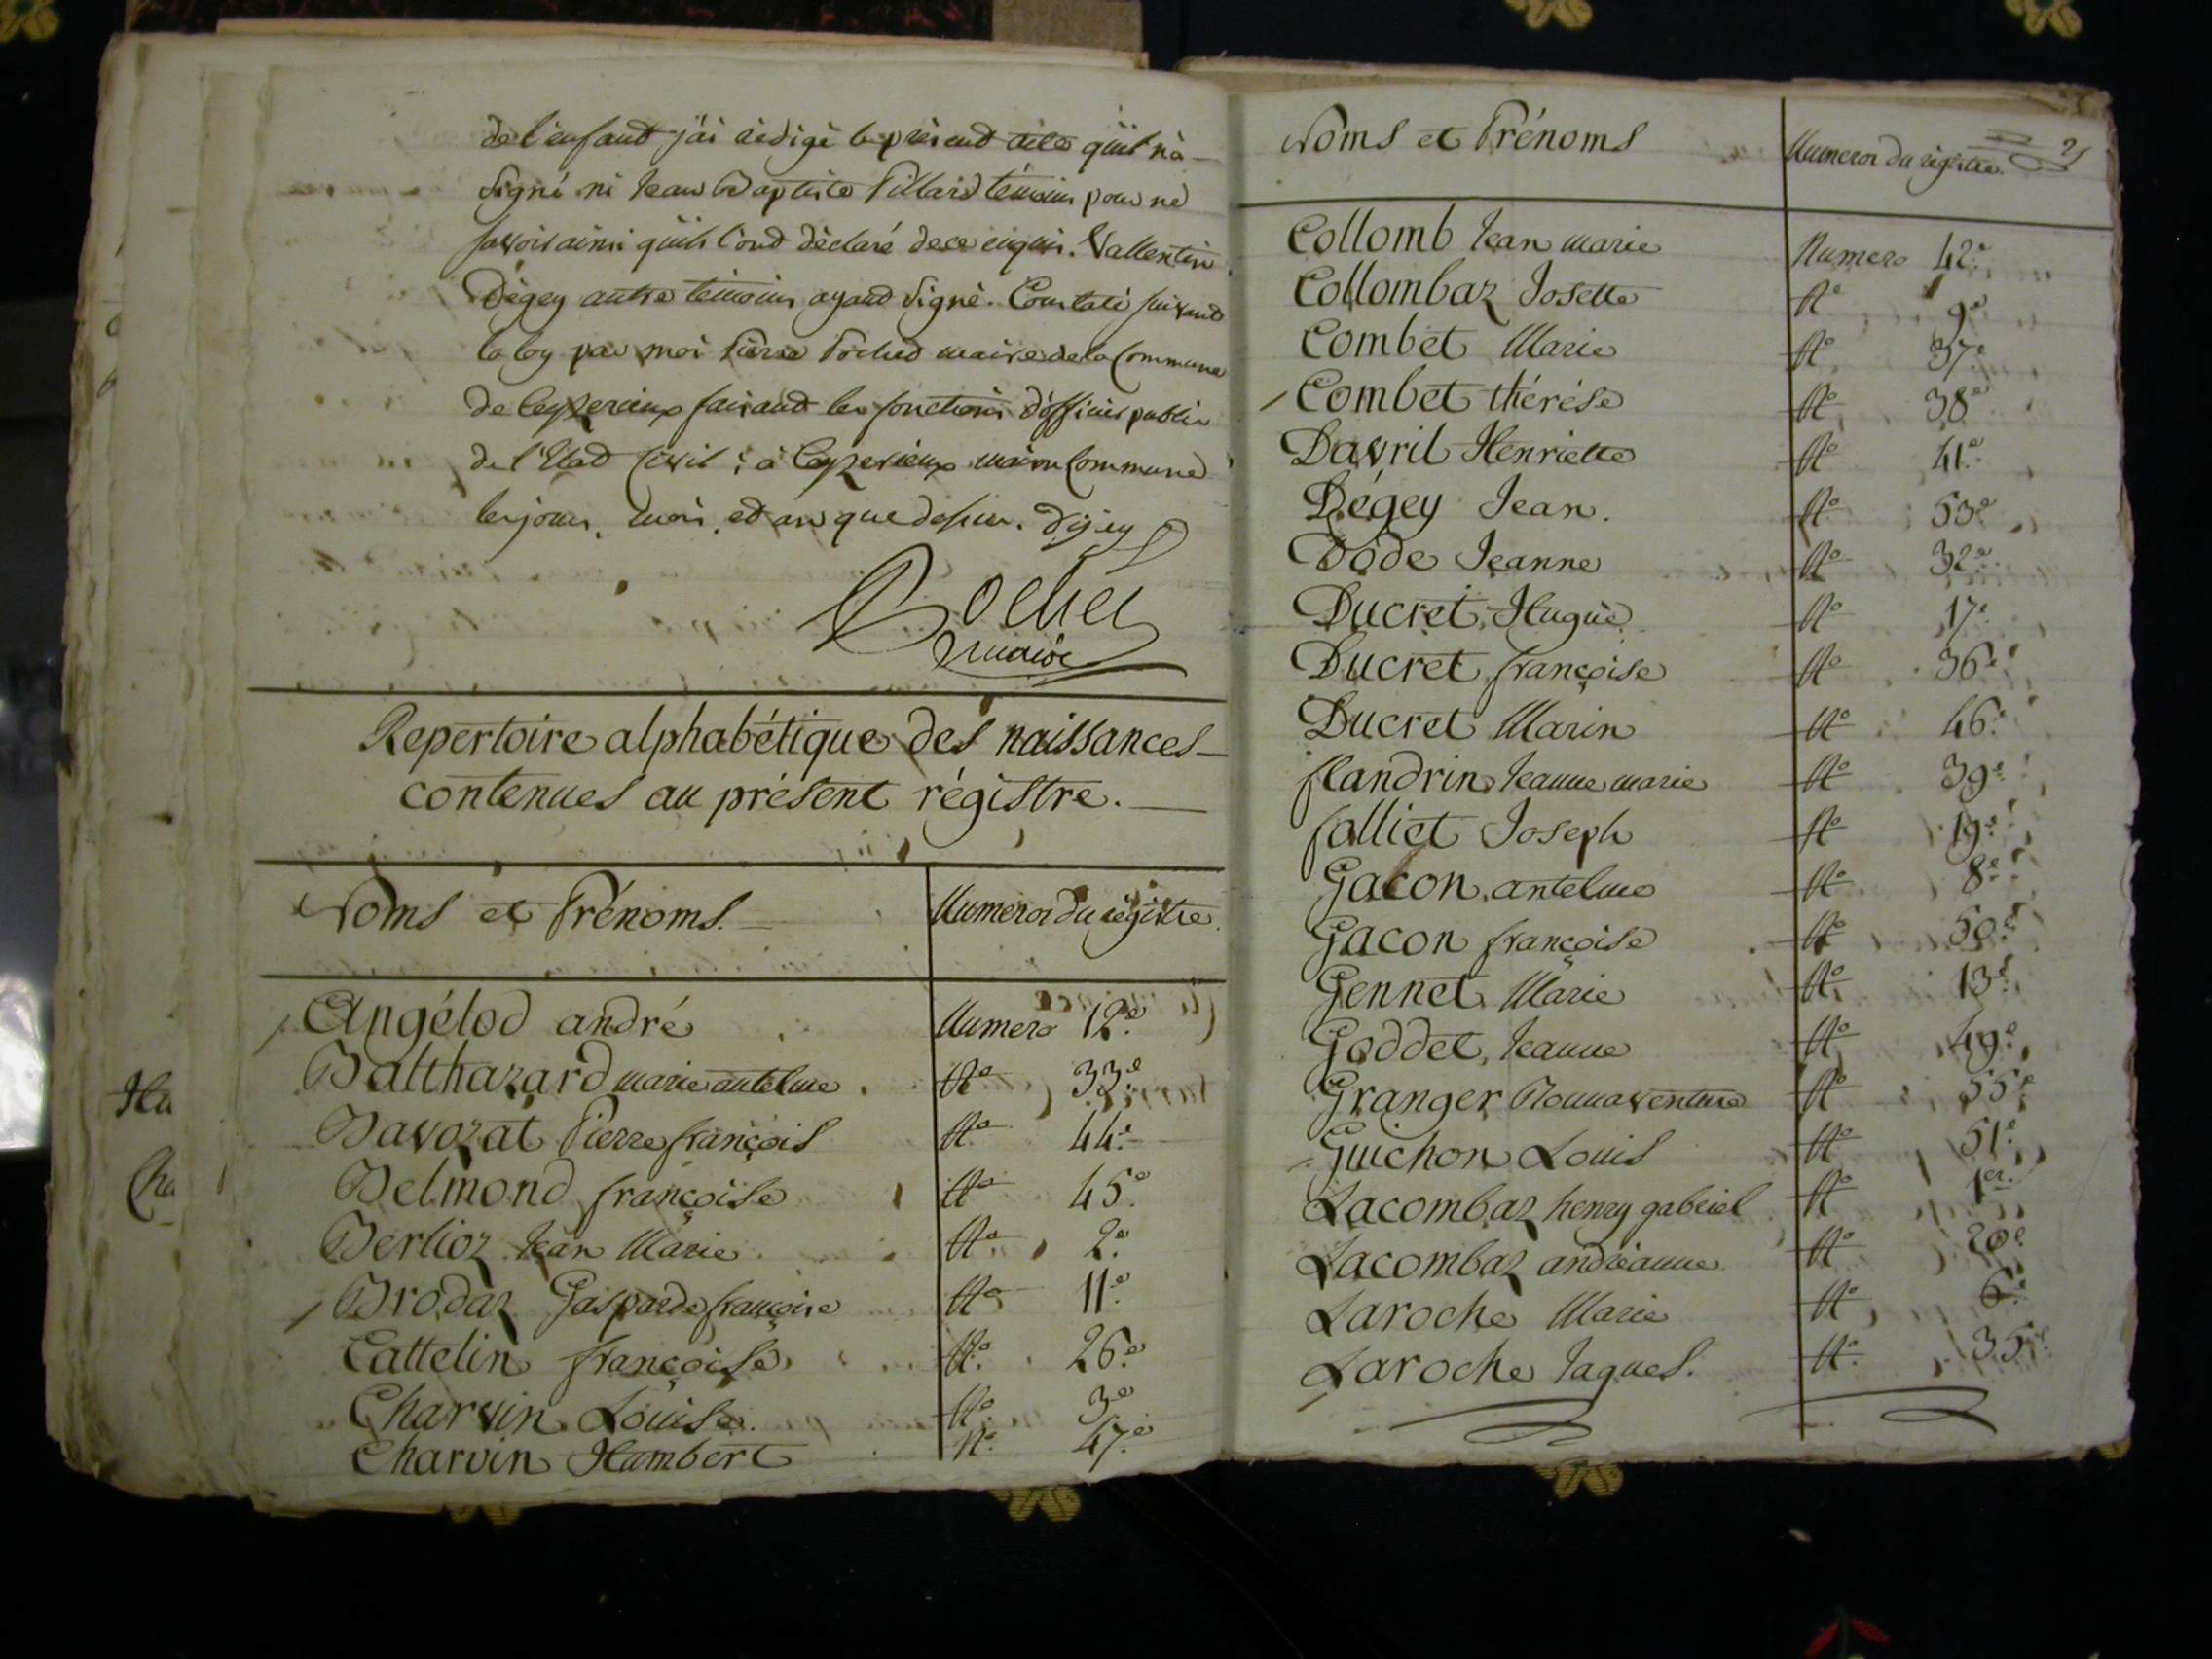 de l'enfant j'ai rédigé le présent acte qu'il n'a
signé ni Jean Baptiste Pillard témoin pour ne
savoir ainsi qu'ils l'ont déclaré de ce enquis. Vallentin
Dégey autre témoin ayant signé. Constaté suivant
la loy par moi Pierre Pochet maire de la Commune
de Ceyzerieux faisant les fonctions d'officier public
de l'Etat Civil ; à Ceyzerieux maison Commune
les jour, mois, et an que dessus. Dégey
Pochet
maire
Repertoire alphabétique des naissances
contenues au présent régistre.
Noms et Prénoms. Numeros du régistre
Angélod andré Numero 12.e
Balthazard marie antelme No 33.e
Bavozat Pierre françois No 44.e
Belmond françoise No 45.e
Berlioz Jean Marie No 2.e
Brodaz Gasparde françoise No 11.e
Cattelin françoise No 26.e
Charvin Louise No 3.e
Charvin Humbert No 47.e
Hu
Cha
Noms et Prénoms Numeros du régistre
Collomb Jean marie Numero 42.e
Collombaz Josette No 9.e
Combet Marie No 37.e
Combet thérése No 38.e
Davril Henriette No 41.e
Dégey Jean. No 53.e
Dode Jeanne No 32.e
Ducret Hugue No 17.e
Ducret françoise No 36.e
Ducret Marin No 46.e
flandrin Jeanne marie No 39.e
folliet Joseph No 19.e
Gacon antelme No 8.e
Gacon françoise No 50.e
Gennet Marie No 13.e
Goddet Jeanne No 49.e
Granger Bonnaventure No 55.e
Guichon Louis No 51.e
Lacombaz henry gabriel No 1er.
Lacombaz andréanne No 20.e
Laroche Marie No 6.e
Laroche Jaques. No 35.e